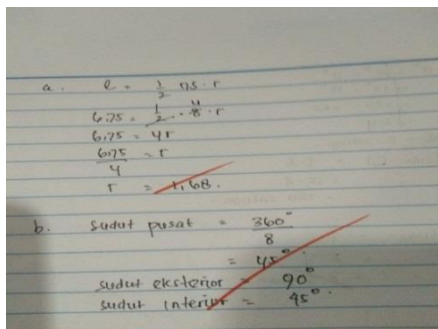 a. l = 1/2 ns . r
6,75 = 1/2 . 8 4 . r
6,75 = 4r
6,75/4 = r
r = 1,68.
b. sudut pusat = 360°/8
= 45°.
sudut eksterior = 90°
sudut interior = 45°.